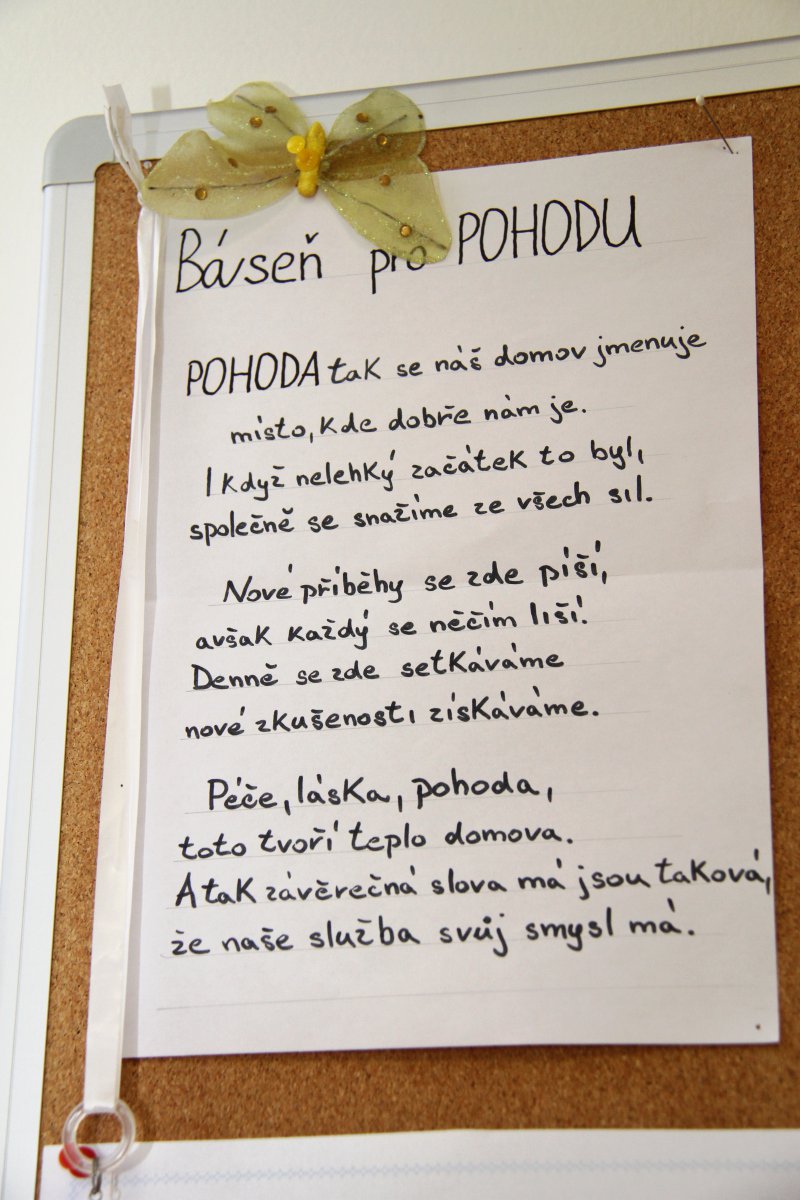 Báseň pro POHODU
POHODA tak se náš domov jmenuje
místo, kde dobře nám je.
I když nelehký začátek to byl,
společně se snažíme ze všech sil.
Nové příběhy se zde píší,
avšak každý se něčím liší.
Denně se zde setkáváme
nové zkušenosti získáváme.
Péče, láska, pohoda,
toto tvoří teplo domova.
A tak závěrečná slova má jsou taková,
že naše služba svůj smysl má.